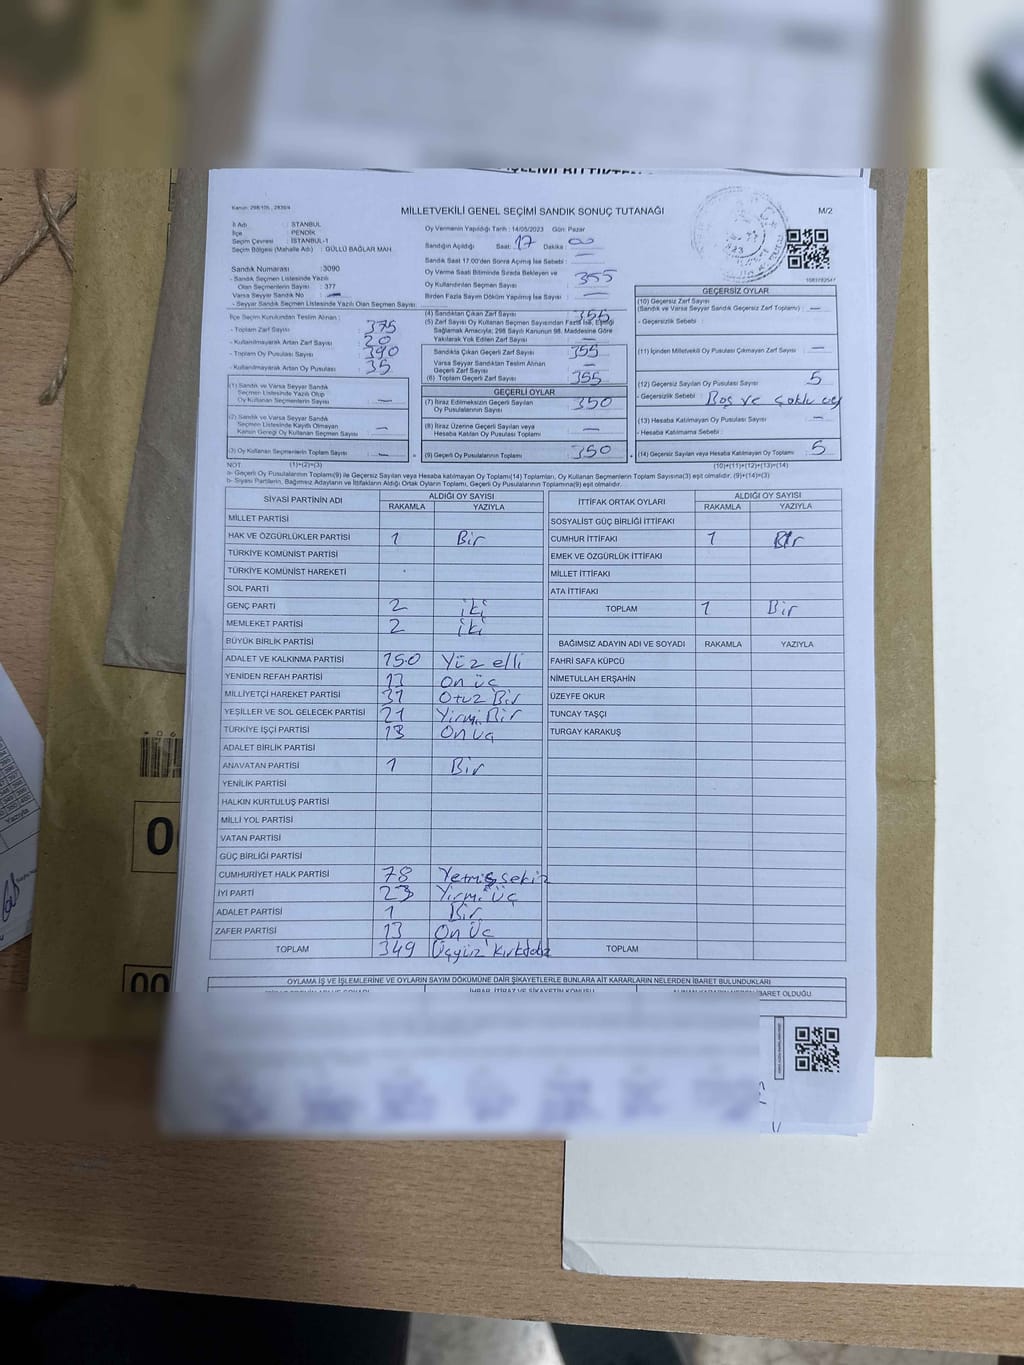 Kanun: 298/105 , 2839/4
MİLLETVEKİLİ GENEL SEÇİMİ SANDIK SONUÇ TUTANAĞI
M/2
İl Adı : İSTANBUL
İlçe : PENDİK
Seçim Çevresi : İSTANBUL-1
Seçim Bölgesi (Mahalle Adı) : GÜLLÜ BAĞLAR MAH.
Sandık Numarası :3090
- Sandık Seçmen Listesinde Yazılı
Olan Seçmenlerin Sayısı : 377
Varsa Seyyar Sandık No : —
- Seyyar Sandık Seçmen Listesinde Yazılı Olan Seçmen Sayısı:
Oy Vermenin Yapıldığı Tarih : 14/05/2023 Gün: Pazar
Sandığın Açıldığı Saat: 17 Dakika 00
Sandık Saat 17.00'den Sonra Açılmış İse Sebebi : —
Oy Verme Saati Bitiminde Sırada Bekleyen ve
Oy Kullandırılan Seçmen Sayısı : 355
Birden Fazla Sayım Döküm Yapılmış İse Sayısı : —
İlçe Seçim Kurulundan Teslim Alınan :
- Toplam Zarf Sayısı : 375
- Kullanılmayarak Artan Zarf Sayısı : 20
- Toplam Oy Pusulası Sayısı : 390
- Kullanılmayarak Artan Oy Pusulası Sayısı : 35
(1) Sandık ve Varsa Seyyar Sandık
Seçmen Listesinde Yazılı Olup
Oy Kullanan Seçmenlerin Sayısı : —
(2) Sandık ve Varsa Seyyar Sandık
Seçmen Listesinde Kayıtlı Olmayan
Kanun Gereği Oy Kullanan Seçmen Sayısı : —
(3) Oy Kullanan Seçmenlerin Toplam Sayısı : —
(4) Sandıktan Çıkan Zarf Sayısı : 355
(5) Zarf Sayısı Oy Kullanan Seçmen Sayısından Fazla İse, Eşitliği
Sağlamak Amacıyla; 298 Sayılı Kanunun 98. Maddesine Göre
Yakılarak Yok Edilen Zarf Sayısı : —
Sandıkta Çıkan Geçerli Zarf Sayısı : 355
Varsa Seyyar Sandıktan Teslim Alınan
Geçerli Zarf Sayısı : —
(6) Toplam Geçerli Zarf Sayısı : 355
GEÇERLİ OYLAR
(7) İtiraz Edilmeksizin Geçerli Sayılan
Oy Pusulalarının Sayısı : 350
(8) İtiraz Üzerine Geçerli Sayılan veya
Hesaba Katılan Oy Pusulası Toplamı : —
(9) Geçerli Oy Pusulalarının Toplamı : 350
1583782547
GEÇERSİZ OYLAR
(10) Geçersiz Zarf Sayısı
(Sandık ve Varsa Seyyar Sandık Geçersiz Zarf Toplamı) : —
- Geçersizlik Sebebi :
(11) İçinden Milletvekili Oy Pusulası Çıkmayan Zarf Sayısı : —
(12) Geçersiz Sayılan Oy Pusulası Sayısı : 5
- Geçersizlik Sebebi : Boş ve çoklu oy
(13) Hesaba Katılmayan Oy Pusulası Sayısı : —
- Hesaba Katılmama Sebebi :
(14) Geçersiz Sayılan veya Hesaba Katılmayan Oy Toplamı : 5
NOT: (1)+(2)=(3) (10)+(11)+(12)+(13)=(14)
a- Geçerli Oy Pusulalarının Toplamı(9) ile Geçersiz Sayılan veya Hesaba Katılmayan Oy Toplamı(14) Toplamları, Oy Kullanan Seçmenlerin Toplam Sayısına(3) eşit olmalıdır. (9)+(14)=(3)
b- Siyasi Partilerin, Bağımsız Adayların ve İttifakların Aldığı Ortak Oyların Toplamı, Geçerli Oy Pusulalarının Toplamına(9) eşit olmalıdır.
SİYASİ PARTİNİN ADI ALDIĞI OY SAYISI
RAKAMLA YAZIYLA
MİLLET PARTİSİ
HAK VE ÖZGÜRLÜKLER PARTİSİ 1 Bir
TÜRKİYE KOMÜNİST PARTİSİ
TÜRKİYE KOMÜNİST HAREKETİ
SOL PARTİ
GENÇ PARTİ 2 iki
MEMLEKET PARTİSİ 2 iki
BÜYÜK BİRLİK PARTİSİ
ADALET VE KALKINMA PARTİSİ 150 Yüz elli
YENİDEN REFAH PARTİSİ 13 On üç
MİLLİYETÇİ HAREKET PARTİSİ 31 Otuz Bir
YEŞİLLER VE SOL GELECEK PARTİSİ 21 Yirmi Bir
TÜRKİYE İŞÇİ PARTİSİ 13 On üç
ADALET BİRLİK PARTİSİ
ANAVATAN PARTİSİ 1 Bir
YENİLİK PARTİSİ
HALKIN KURTULUŞ PARTİSİ
MİLLİ YOL PARTİSİ
VATAN PARTİSİ
GÜÇ BİRLİĞİ PARTİSİ
CUMHURİYET HALK PARTİSİ 78 Yetmiş sekiz
İYİ PARTİ 23 Yirmi Üç
ADALET PARTİSİ 1 Bir
ZAFER PARTİSİ 13 On Üç
TOPLAM 349
İTTİFAK ORTAK OYLARI ALDIĞI OY SAYISI
RAKAMLA YAZIYLA
SOSYALİST GÜÇ BİRLİĞİ İTTİFAKI
CUMHUR İTTİFAKI 1 Bir
EMEK VE ÖZGÜRLÜK İTTİFAKI
MİLLET İTTİFAKI
ATA İTTİFAKI
TOPLAM 1 Bir
BAĞIMSIZ ADAYIN ADI VE SOYADI RAKAMLA YAZIYLA
FAHRİ SAFA KÜPCÜ
NİMETULLAH ERŞAHİN
ÜZEYFE OKUR
TUNCAY TAŞÇI
TURGAY KARAKUŞ
TOPLAM
OYLAMA İŞ VE İŞLEMLERİNE VE OYLARIN SAYIM DÖKÜMÜNE DAİR ŞİKAYETLERLE BUNLARA AİT KARARLARIN NELERDEN İBARET BULUNDUKLARI
İHBAR, İTİRAZ VE ŞİKAYETİN KONUSU